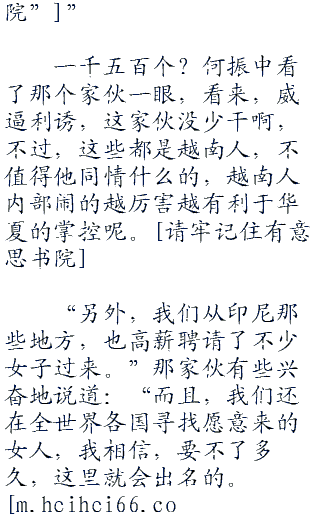 院”]”
一千五百个？何振中看
了那个家伙一眼，看来，威
逼利诱，这家伙没少干啊，
不过，这些都是越南人，不
值得他同情什么的，越南人
内部闹的越厉害越有利于华
夏的掌控呢。[请牢记住有意
思书院]
“另外，我们从印尼那
些地方，也高薪聘请了不少
女子过来。”那家伙有些兴
奋地说道：“而且，我们还
在全世界各国寻找愿意来的
女人，我相信，要不了多
久，这里就会出名的。
[m.hcihci66.co